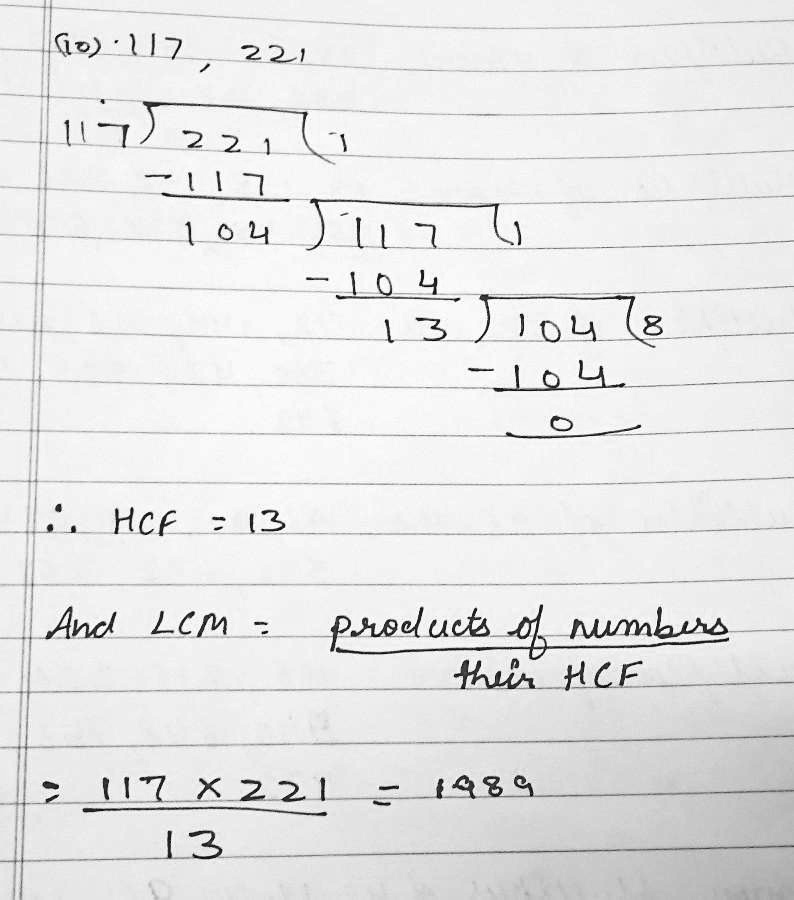 (10) · 117, 221
117) 221 (1
-117
104) 117 (1
-104
13) 104 (8
-104
0
∴ HCF = 13
And LCM = products of numbers
their HCF
= 117 × 221 = 1989
13